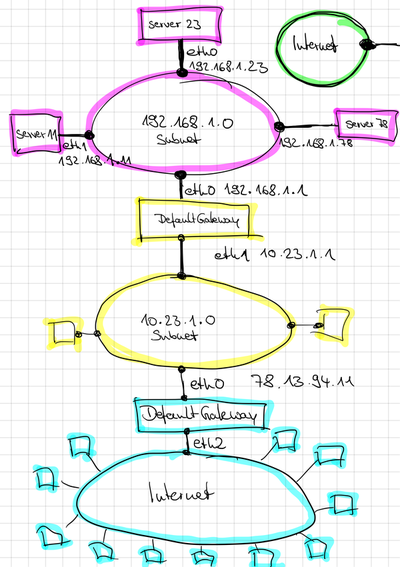 server 23
eth0
192.168.1.23
Internet
192.168.1.0
Subnet
server 11
eth1
192.168.1.11
server 78
192.168.1.78
eth0 192.168.1.1
Default Gateway
eth1 10.23.1.1
10.23.1.0
Subnet
eth0 78.13.94.11
Default Gateway
eth2
Internet